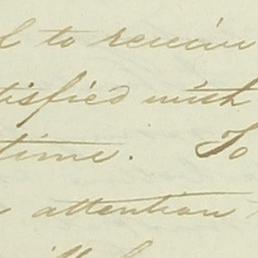 to receive
satisfied with
time. To
attention